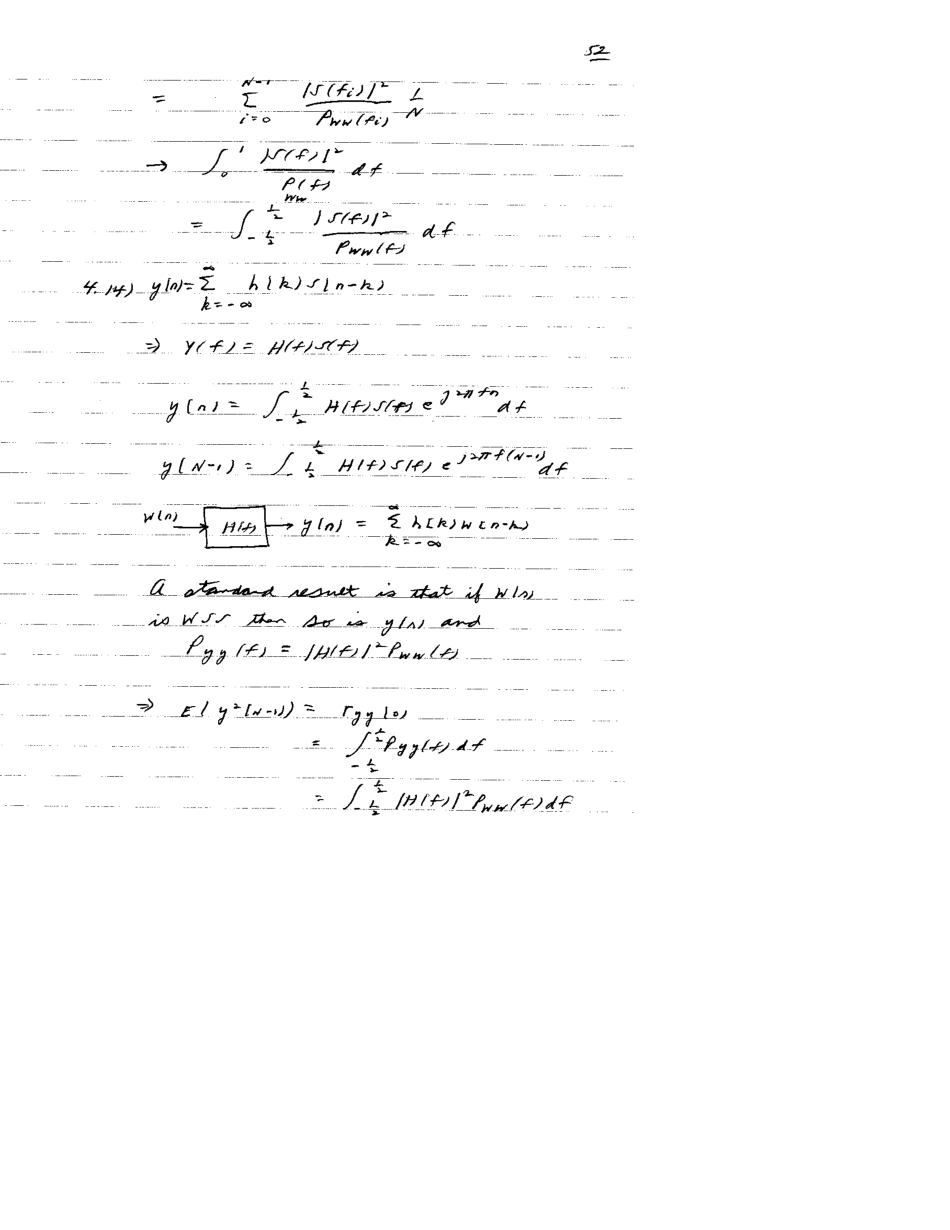 52
= \sum_{i=0}^{N-1} \frac{|S(f_i)|^2}{P_{WW}(f_i)} \frac{1}{N}
→ \int_0^1 \frac{|S(f)|^2}{P_{WW}(f)} df
= \int_{-\frac{1}{2}}^{\frac{1}{2}} \frac{|S(f)|^2}{P_{WW}(f)} df
4.14) y[n] = \sum_{k=-∞}^{∞} h[k] s[n-k]
⇒ Y(f) = H(f) S(f)
y[n] = \int_{-\frac{1}{2}}^{\frac{1}{2}} H(f) S(f) e^{j2πfn} df
y[N-1] = \int_{-\frac{1}{2}}^{\frac{1}{2}} H(f) S(f) e^{j2πf(N-1)} df
w[n] → H(f) → y[n] = \sum_{k=-∞}^{∞} h[k] w[n-k]
A standard result is that if w[n]
is WSS then so is y[n] and
P_{yy}(f) = |H(f)|^2 P_{WW}(f)
⇒ E(y^2[N-1]) = r_{yy}[0]
= \int_{-\frac{1}{2}}^{\frac{1}{2}} P_{yy}(f) df
= \int_{-\frac{1}{2}}^{\frac{1}{2}} |H(f)|^2 P_{WW}(f) df